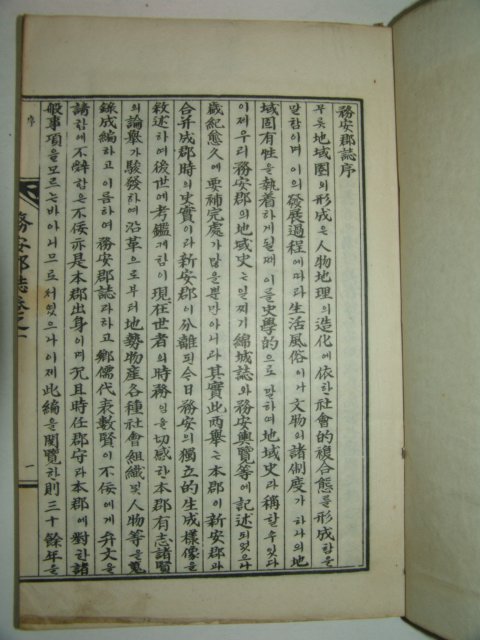 務安郡誌序
무릇 地域圈의 形成은 人物地理의 造化에 依한 社會的 複合態를 形成함을
말함이며 이의 發展過程에 따라 生活風俗이나 文物의 諸制度가 하나의 地
域固有性을 執着하게 될때 이를 史學的으로 말하여 地域史라 稱할수있다
이제 우리 務安郡의 地域史는 일찌기 綿城誌와 務安輿覽等에 記述되었으나
歲紀愈久에 要補完處가 많을뿐만아니라 其實此兩擧는 本郡이 新安郡과
合并成郡時의 史實이라 新安郡이 分離된 今日 務安의 獨立的 生成樣像을
敘述하여 後世에 考鑑케함이 現在世者의 時務임을 切感한 本郡有志諸賢
의 論擧가 駿發하여 沿革으로부터 地勢物産各種社會組織및 人物等을 蒐
錄成編하고 이름하여 務安郡誌라하고 鄕儒代表數賢이 不佞에게 弁文을
諸함에 不辭함은 不佞亦是本郡出身이며 况且時任郡守라 本郡에 對한 諸
般事項을 모르는바아니므로 서었으나 이제 此編을 閱覽한則 三十餘年을
序
務安郡誌卷之一
一